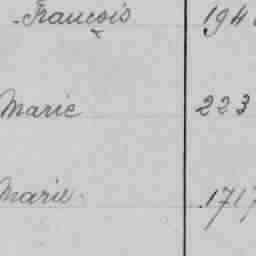 François 194
Marie 223
Marie 1717